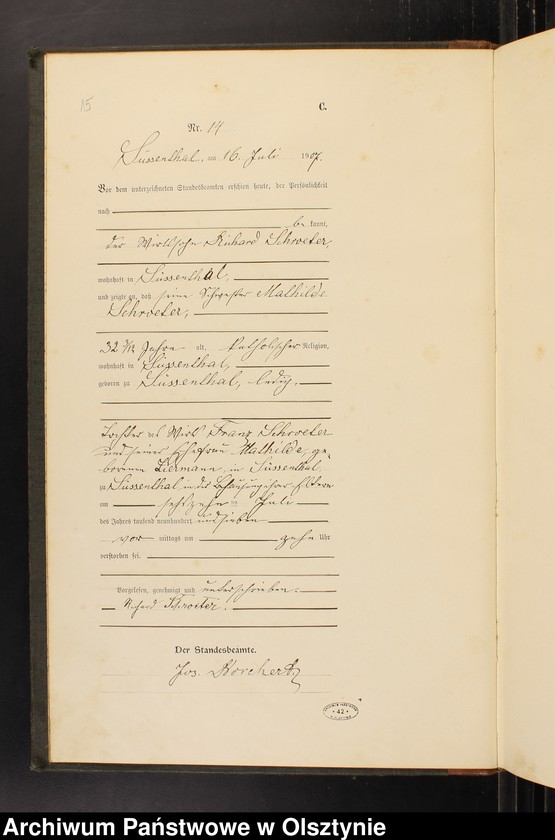 15
C.
Nr. 14
Süssenthal, am 16. Juli 1907.
Vor dem unterzeichneten Standesbeamten erschien heute, der Persönlichkeit
nach
be kannt,
der Wirtssohn Richard Schroeter
wohnhaft in Süssenthal,
und zeigte an, daß seine Schwester Mathilde
Schroeter,
32 Jahre alt, katholischer Religion,
wohnhaft in Süssenthal,
geboren zu Süssenthal, ledig,
Tochter des Wirts Franz Schroeter
und seiner Ehefrau Mathilde, ge-
borenen Liermann, in Süssenthal
zu Süssenthal, in der Behausung ihrer Eltern
am sechszehn Juli
des Jahres tausend neunhundert und sieben
vor mittags um zehn Uhr
verstorben sei.
Vorgelesen, genehmigt und unterschrieben.
Richard Schroeter.
Der Standesbeamte.
Jos. Borchert
42
Archiwum Państwowe w Olsztynie